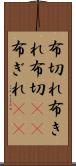 布切れ布き
れ布切︎︎
布ぎれ